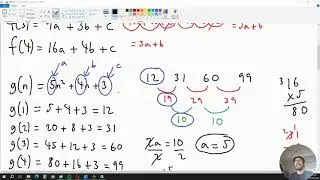 f(4) = 16a + 4b + c
= 3a + b
a b c
g(n) = 5n² + 4n + 3
g(1) = 5 + 4 + 3 = 12
g(2) = 20 + 8 + 3 = 31
g(3) = 45 + 12 + 3 = 60
g(4) = 80 + 16 + 3 = 99
12 31 60 99
19 29 39
10 10
2a = 10
2 2
a = 5
3 16
x 5
80